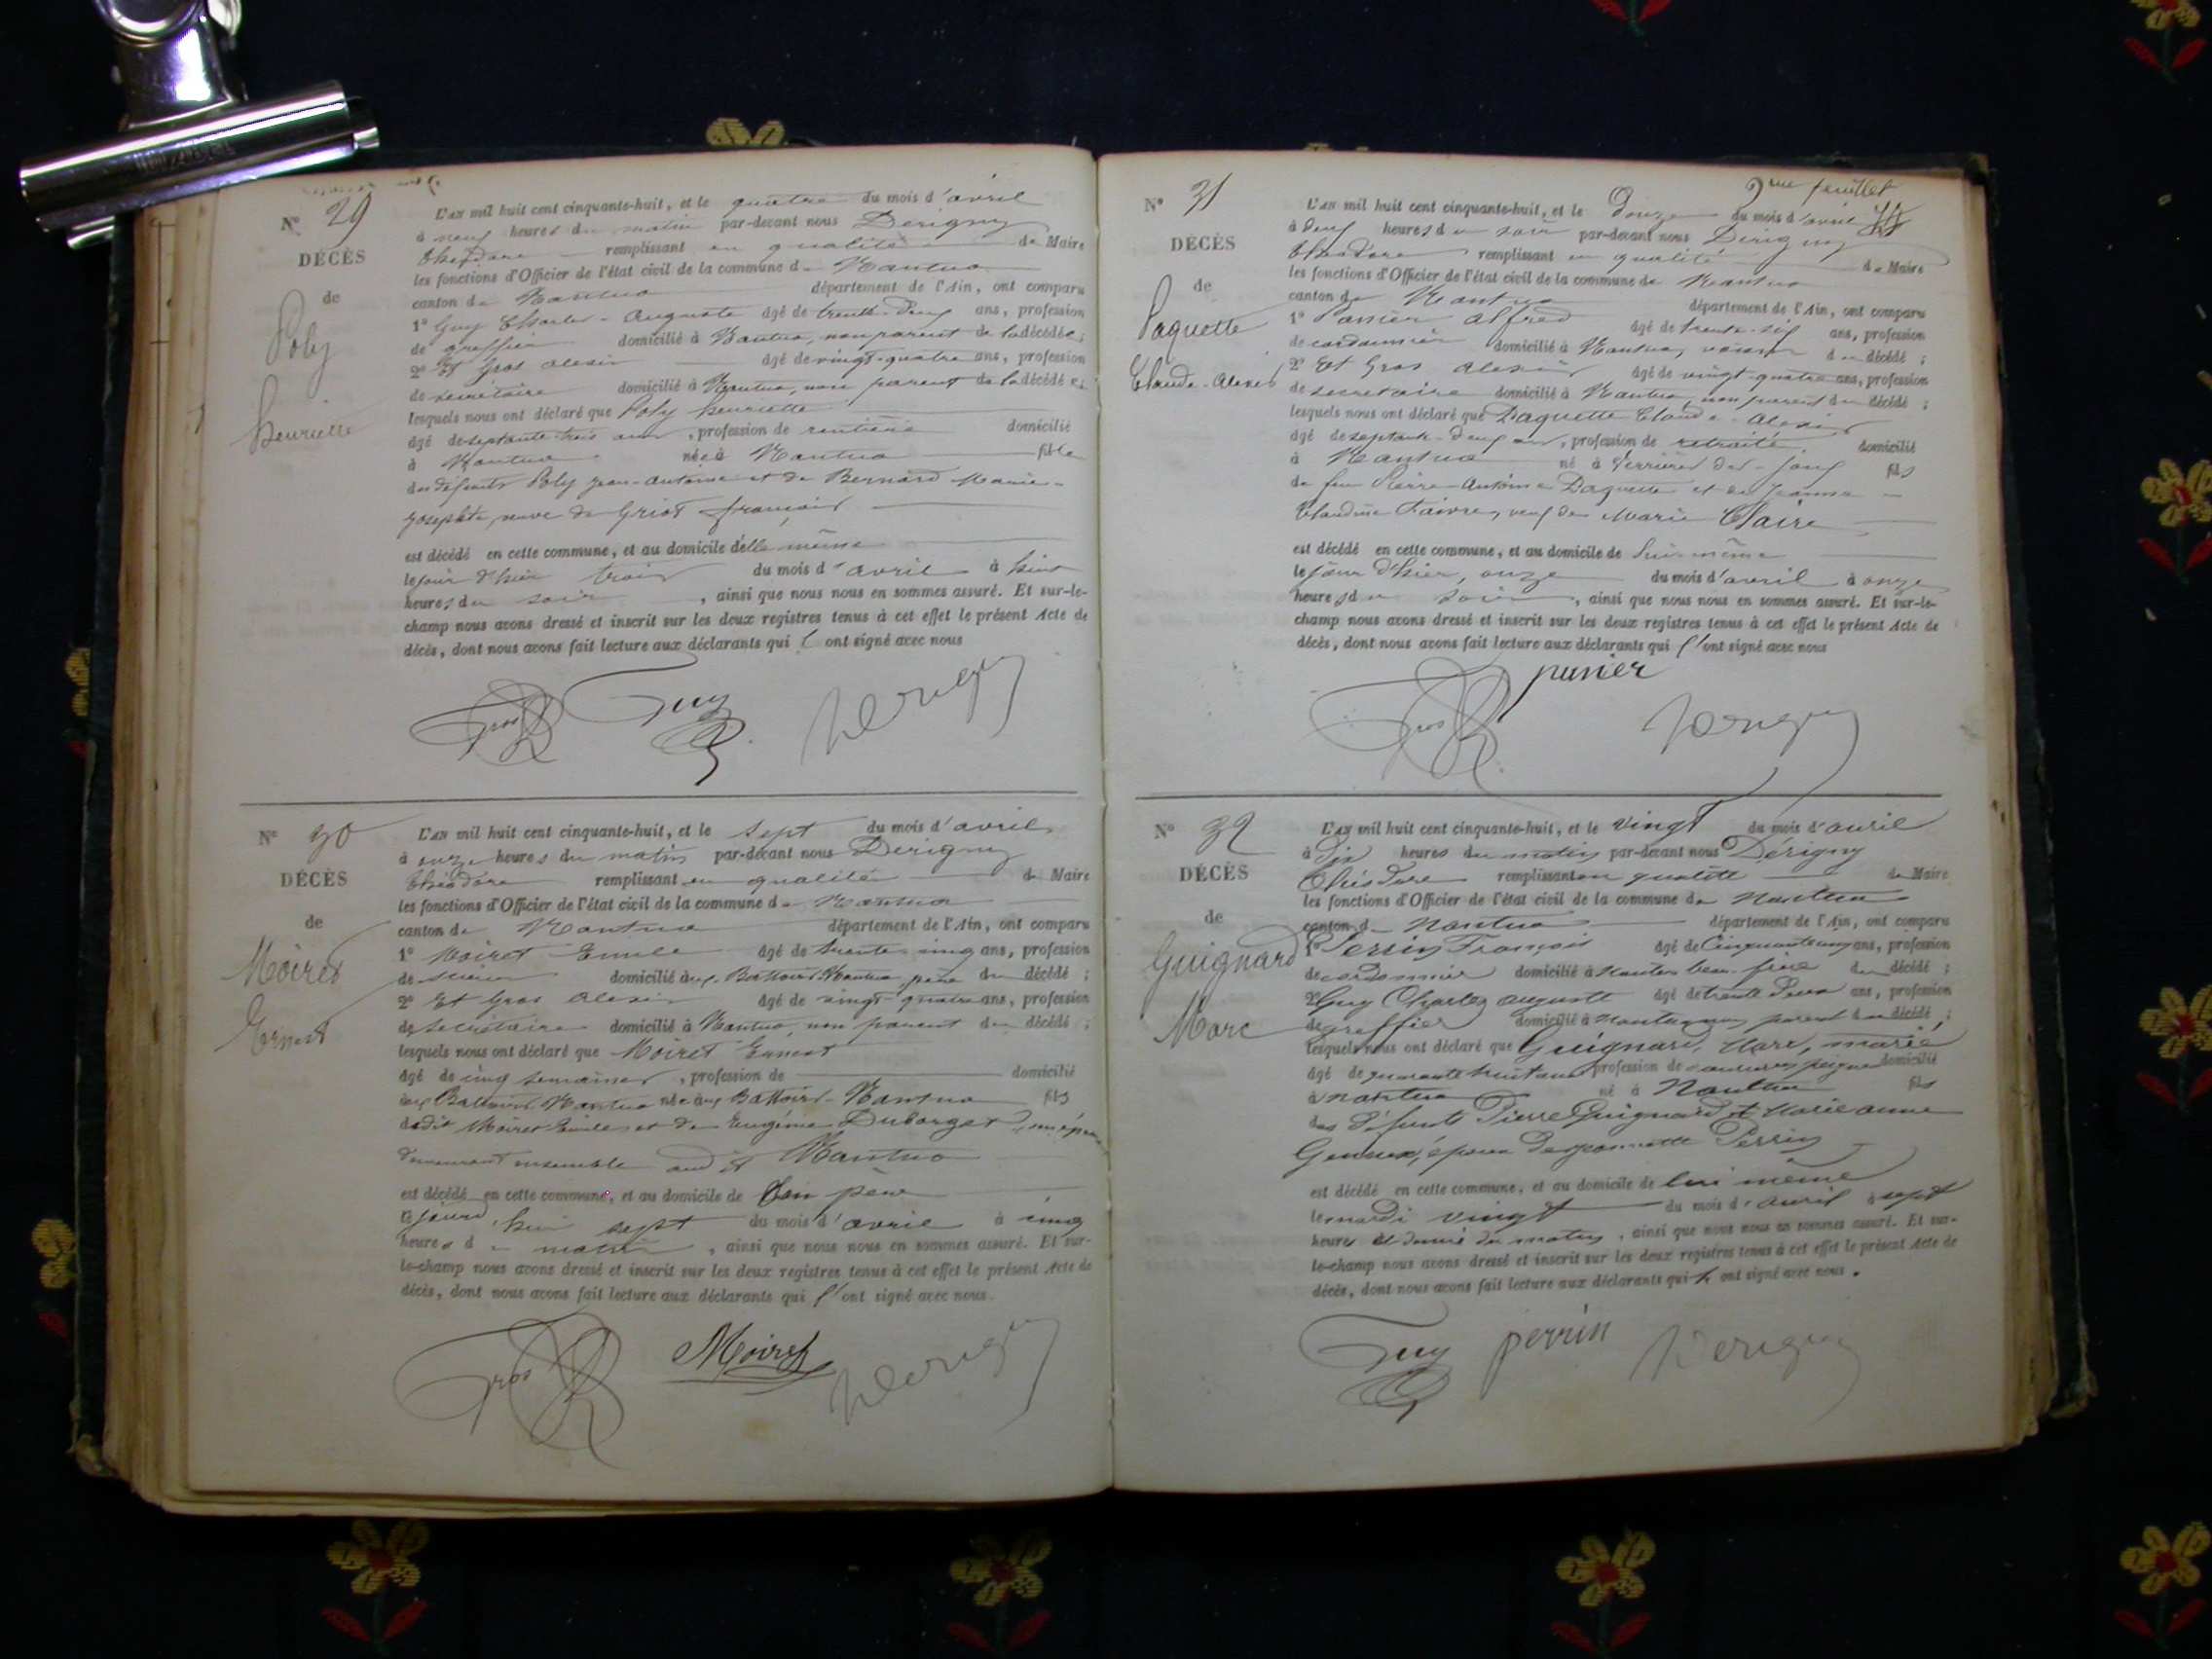 N° 29
DÉCÈS
de
Poly
henriette
L'an mil huit cent cinquante-huit, et le quatre du mois d'avril
à neuf heures du matin par-devant nous Derigny
théodore remplissant en qualité de Maire
les fonctions d'Officier de l'état civil de la commune de Nantua
canton de Nantua département de l'Ain, ont comparu
1° Guy Charles-Auguste âgé de trente-deux ans, profession
de greffier domicilié à Nantua, non parent de la décédée;
2° Et Gros alexis âgé de vingt-quatre ans, profession
de secrétaire domicilié à Nantua, non parent de la décédée;
lesquels nous ont déclaré que Poly henriette
âgé de septante-trois ans, profession de rentière domicilié
à Nantua née à Nantua fille
des défunts Poly Jean-antoine et de Bernard Marie-
Josephte, veuve de Griot françois
est décédé en cette commune, et au domicile d'elle même
le jour d'hier trois du mois d'avril à huit
heures du soir, ainsi que nous nous en sommes assuré. Et sur-le-
champ nous avons dressé et inscrit sur les deux registres tenus à cet effet le présent Acte de
décès, dont nous avons fait lecture aux déclarants qui l'ont signé avec nous
Gros Guy Derigny
N° 30
DÉCÈS
de
Moiret
Ernest
L'an mil huit cent cinquante-huit, et le sept du mois d'avril
à onze heures du matin par-devant nous Derigny
théodore remplissant en qualité de Maire
les fonctions d'Officier de l'état civil de la commune de Nantua
canton de Nantua département de l'Ain, ont comparu
1° Moiret Emile âgé de trente-cinq ans, profession
de scieur domicilié aux Battoirs Nantua, père du décédé;
2° Et Gros alexis âgé de vingt-quatre ans, profession
de secrétaire domicilié à Nantua, non parent du décédé;
lesquels nous ont déclaré que Moiret Ernest
âgé de cinq semaines, profession de domicilié
aux Battoirs Nantua né aux Battoirs-Nantua fils
dudit Moiret Emile et de Eugénie Duborget
demeurant ensemble audit Nantua
est décédé en cette commune, et au domicile de son père
aujourd'hui sept du mois d'avril à cinq
heures du matin, ainsi que nous nous en sommes assuré. Et sur-
le-champ nous avons dressé et inscrit sur les deux registres tenus à cet effet le présent Acte de
décès, dont nous avons fait lecture aux déclarants qui l'ont signé avec nous.
Gros Moiret Derigny
2me feuillet
N° 31
DÉCÈS
de
Paquette
Claude-Alexis
L'an mil huit cent cinquante-huit, et le Douze du mois d'avril
à deux heures du soir par-devant nous Derigny
théodore remplissant en qualité de Maire
les fonctions d'Officier de l'état civil de la commune de Nantua
canton de Nantua département de l'Ain, ont comparu
1° Panier alfred âgé de trente-six ans, profession
de cordonnier domicilié à Nantua, voisin du décédé;
2° Et Gros alexis âgé de vingt-quatre ans, profession
de secretaire domicilié à Nantua, non parent du décédé;
lesquels nous ont déclaré que Paquette Claude-Alexis
âgé de septante-deux ans, profession de retraité domicilié
à Nantua né à Verrières de-Joux fils
de feu Pierre-Antoine Paquette et de Jeanne
Claudine Faivre, veuf de Marie Claire
est décédé en cette commune, et au domicile de lui-même
le jour d'hier, onze du mois d'avril à onze
heures du soir, ainsi que nous nous en sommes assuré. Et sur-le-
champ nous avons dressé et inscrit sur les deux registres tenus à cet effet le présent Acte de
décès, dont nous avons fait lecture aux déclarants qui l'ont signé avec nous
panier
Gros Derigny
N° 32
DÉCÈS
de
Guignard
Marc
L'an mil huit cent cinquante-huit, et le vingt du mois d'avril
à Dix heures du matin par-devant nous Dérigny
Théodore remplissant en qualité de Maire
les fonctions d'Officier de l'état civil de la commune de Nantua
canton de Nantua département de l'Ain, ont comparu
1° Perrin François âgé de Cinquante cinq ans, profession
de cordonnier domicilié à Nantua beau-frère du décédé;
2° Guy Charles auguste âgé de trente Deux ans, profession
de greffier domicilié à Nantua non parent du décédé;
lesquels nous ont déclaré que Guignard, Marc, marié
âgé de quarante huit ans profession de domicilié
à nantua né à Nantua fils
des Défunts Pierre Guignard et Marie anne
époux Perrin
est décédé en cette commune, et au domicile de lui même
le mardi vingt du mois d'avril à sept
heures et demie du matin, ainsi que nous nous en sommes assuré. Et sur-
le-champ nous avons dressé et inscrit sur les deux registres tenus à cet effet le présent Acte de
décès, dont nous avons fait lecture aux déclarants qui ont signé avec nous.
Guy perrin Derigny